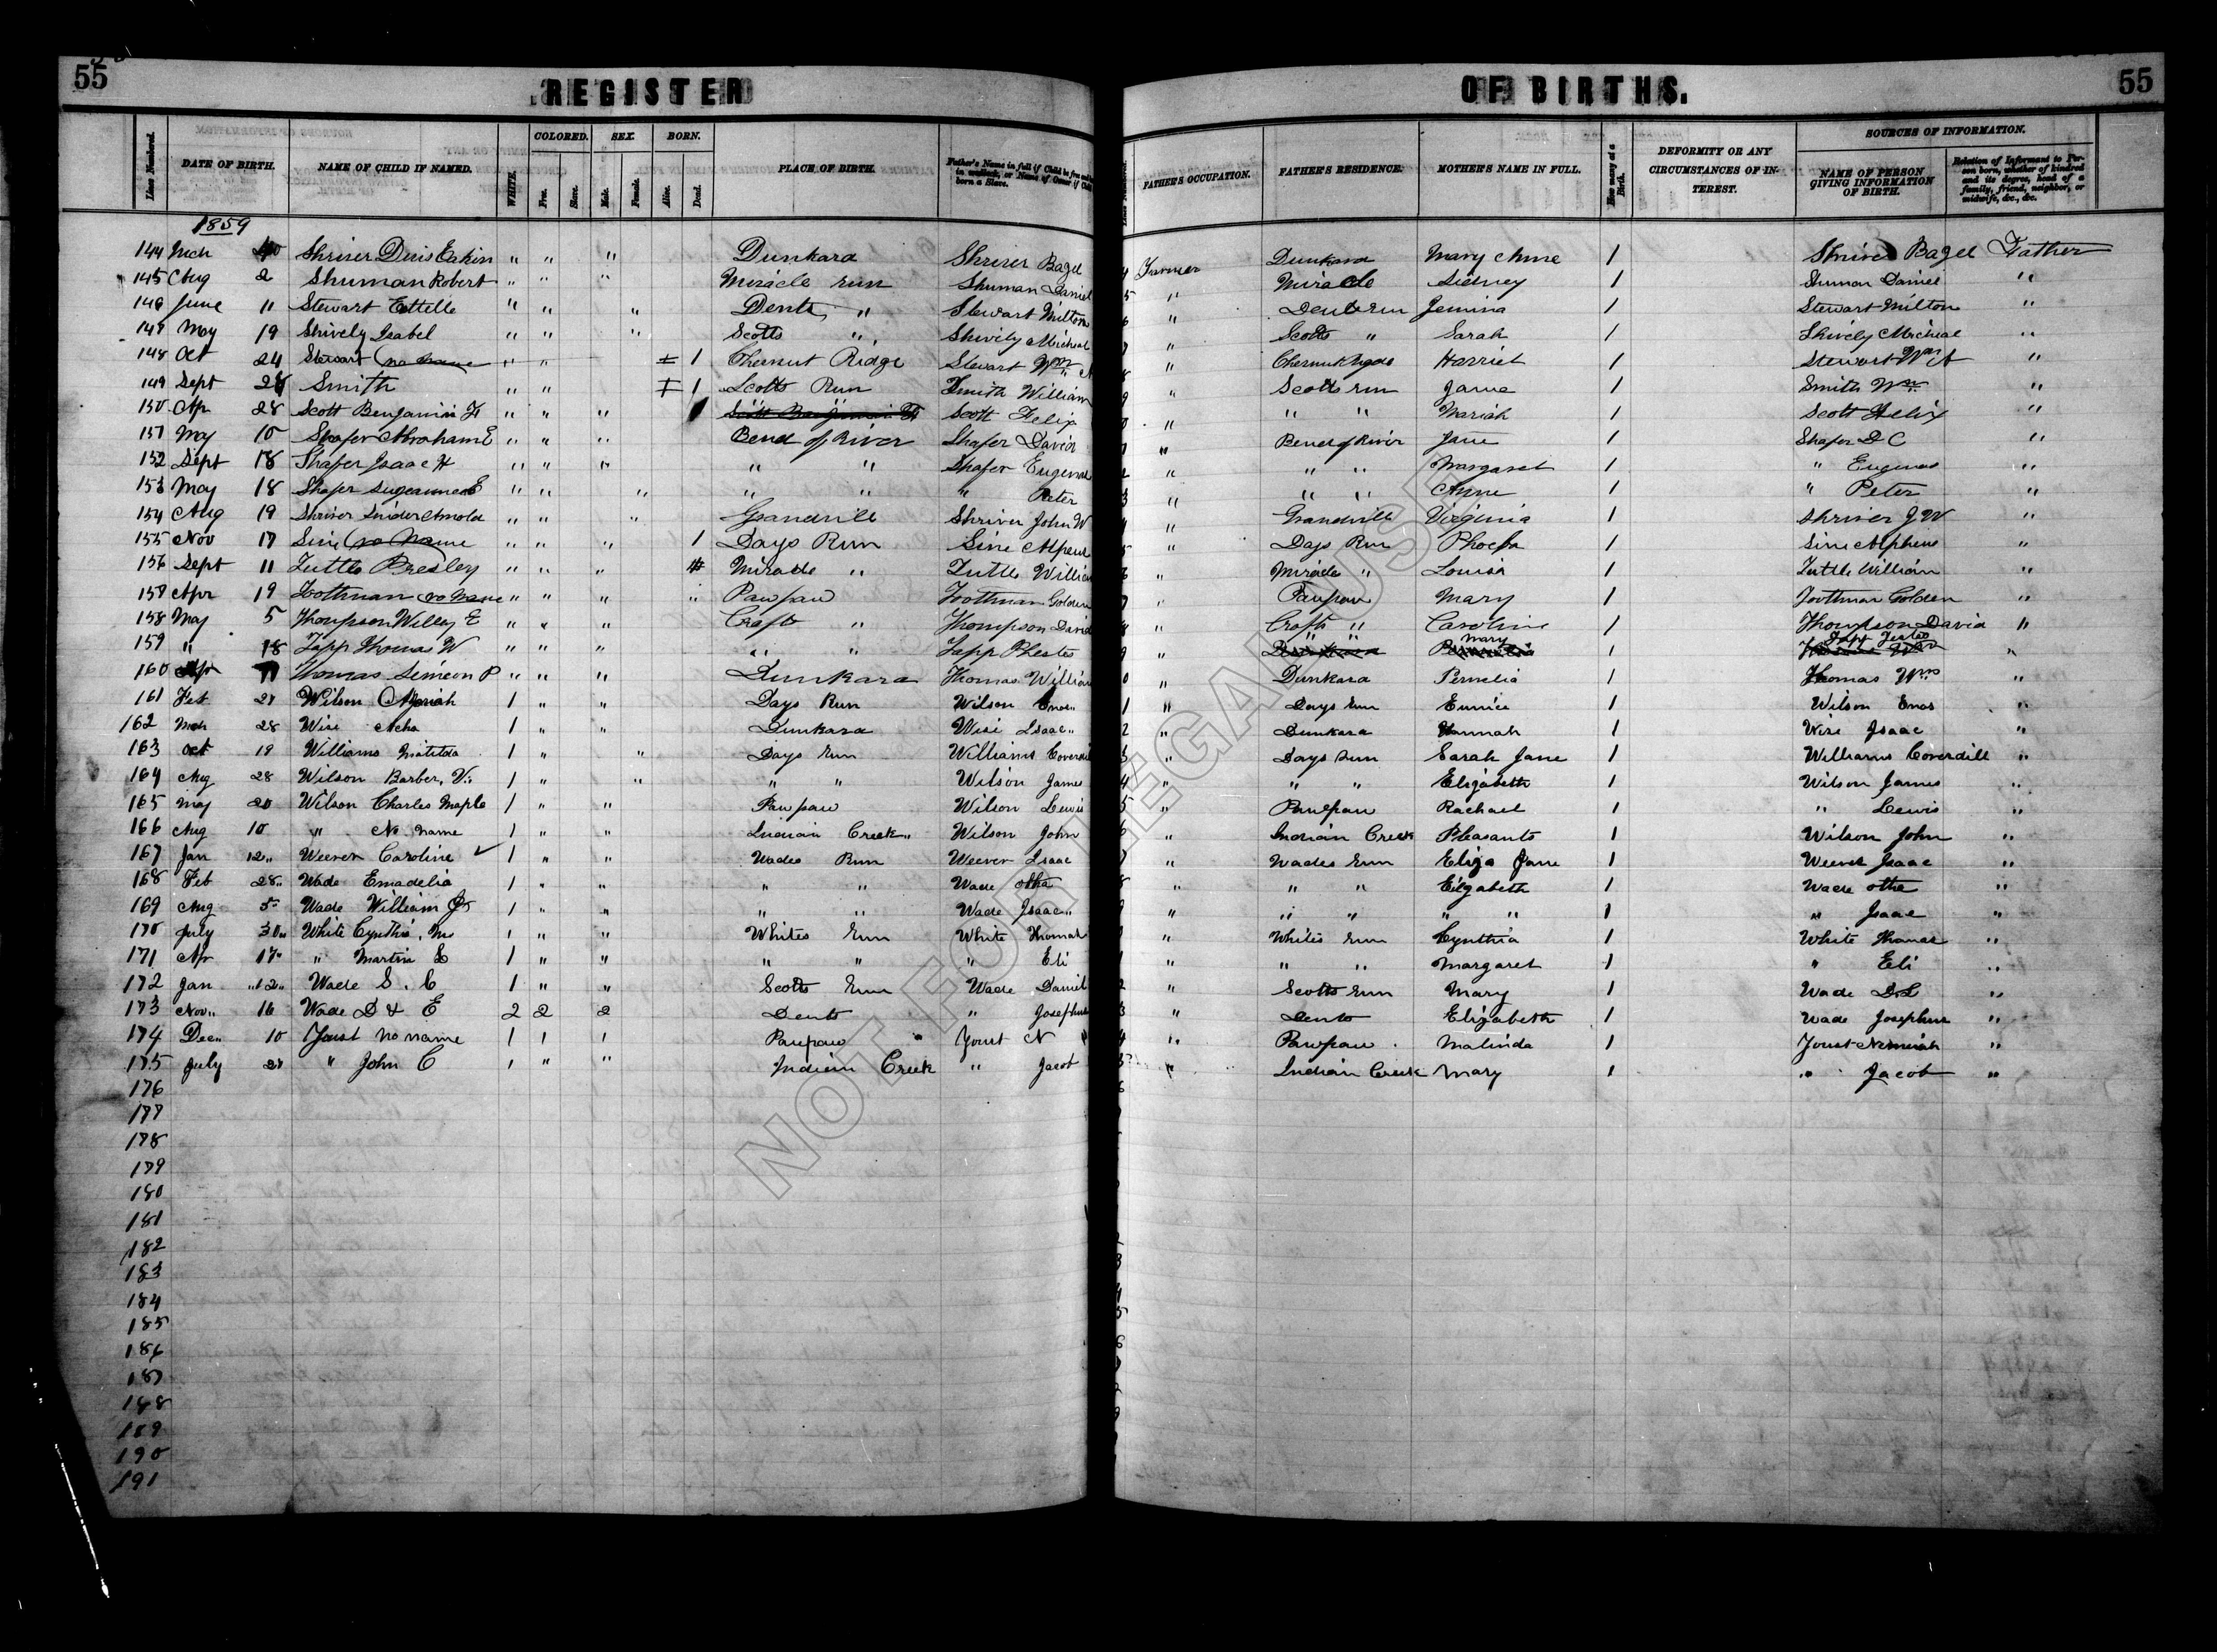 55 REGISTER OF BIRTHS. 55
Lines Numbered. DATE OF BIRTH. NAME OF CHILD IF NAMED. WHITE. COLORED. Free. Slave. SEX. Male. Female. BORN. Alive. Dead. PLACE OF BIRTH. Father's Name in full if Child be free and born in wedlock, or Name of Owner if Child born a Slave. FATHER'S OCCUPATION. FATHER'S RESIDENCE. MOTHER'S NAME IN FULL. How many at a Birth. DEFORMITY OR ANY CIRCUMSTANCES OF INTEREST. SOURCES OF INFORMATION. NAME OF PERSON GIVING INFORMATION OF BIRTH. Relation of Informant to Person born, whether of kindred and its degree, head of a family, friend, neighbor, or midwife, &c., &c.
1859
144 Mch Shriver Eakin " " " Dunkard Shriver Bazel 4 Farmer Dunkard Mary Anne 1 Shriver Bazel Father
145 Aug 2 Shuman Robert " " " Miracle run Shuman Daniel 5 " Miracle Sidney 1 Shuman Daniel "
146 June 11 Stewart Estelle " " " Dents " Stewart Milton 6 " Dents run Jemima 1 Stewart Milton "
147 May 19 Shively Isabel " " " Scotts " Shively Micheal 7 " Scotts " Sarah 1 Shively Micheal "
148 Oct 24 Stewart no name " " 1 Chesnut Ridge Stewart Wm A 8 " Chesnut Ridge Harriet 1 Stewart Wm A "
149 Sept 24 Smith " " 1 Scotts Run Smith William 9 " Scotts run Jane 1 Smith Wm "
150 Apr 28 Scott Benjamin F " " " Scott Benjamin F Scott Felix 0 " " " Mariah 1 Scott Felix "
151 May 10 Shafer Abraham E " " " Bend of River Shafer David " Bend of River Jane 1 Shafer D C "
152 Sept 18 Shafer Isaac H " " " " " Shafer Eugenus 2 " " " Margaret 1 " Eugenus "
153 May 18 Shafer E " " " " " " Peter 3 " " " Anne 1 " Peter "
154 Aug 19 Shriver Arnold " " " Grandvill Shriver John W 4 " Grandville Virginia 1 Shriver J W "
155 Nov 17 Sine no Name " " " 1 Days Run Sine Alpeus 5 " Days Run Phoeba 1 Sine Alpheus "
156 Sept 11 Tuttle Presley " " " Miracle " Tuttle William 6 " Miracle " Louisa 1 Tuttle William "
157 Apr 19 Toothman no Name " " " " Pawpaw Toothman Golden 7 " Pawpaw Mary 1 Toothman Golden "
158 May 5 Thompson Willey E " " " Crafts " Thompson David 8 " Crafts " Caroline 1 Thompson David "
159 " 18 Tapp Thomas W " " " " " Tapp 9 " " " Mary 1 Tapp "
160 Apr Thomas Simeon P " " " Dunkard Thomas William 0 " Dunkara Permelia 1 Thomas Wm "
161 Feb 27 Wilson " " Days Run Wilson Enos 1 " Days run Eunice 1 Wilson Enos "
162 Mch 28 Wise Acha 1 " " Dunkara Wise Isaac 2 " Dunkara Hannah 1 Wise Isaac "
163 Oct 19 Williams Matilda 1 " " Days run Williams Coverdill 3 " Days run Sarah Jane 1 Williams Coverdill "
164 Aug 28 Wilson Barber, V. 1 " " " " Wilson James 4 " " " Elizabeth 1 Wilson James "
165 May 20 Wilson Charles Maple 1 " " Pawpaw Wilson Lewis 5 " Pawpaw Rachael 1 " Lewis "
166 Aug 10 " No name 1 " " Indian Creek Wilson John 6 " Indian Creek Pleasants 1 Wilson John "
167 Jan 12 Weever Caroline ✓ 1 " " Wades Run Weever Isaac 7 " Wades run Eliza Jane 1 Weever Isaac "
168 Feb 28 Wade Emadelia 1 " " " " Wade Otha 8 " " " Elizabeth 1 Wade Otha "
169 Aug 5 Wade William 1 " " " " Wade Isaac 9 " " " " " 1 " Isaac "
170 July 30 White Cynthia, M 1 " " Whites run White Thomas " Whites run Cynthia 1 White Thomas "
171 Apr 17 " Martin L 1 " " " " " Eli 1 " " " Margaret 1 " Eli "
172 Jan 12 Wade S. C 1 " " Scotts run Wade Daniel 2 " Scotts run Mary 1 Wade D L "
173 Nov 16 Wade D & E 2 2 2 Dents " Josephus 3 " Dents Elizabeth 1 Wade Josephus "
174 Dec 10 Youst no name 1 1 1 Pawpaw Youst N 4 " Pawpaw Malinda 1 Youst "
175 July 27 " John C 1 " " Indian Creek " Jacob 5 " Indian Creek Mary 1 " Jacob "
176
177
178
179
180
181
182
183
184
185
186
187
188
189
190
191
NOT FOR LEGAL USE